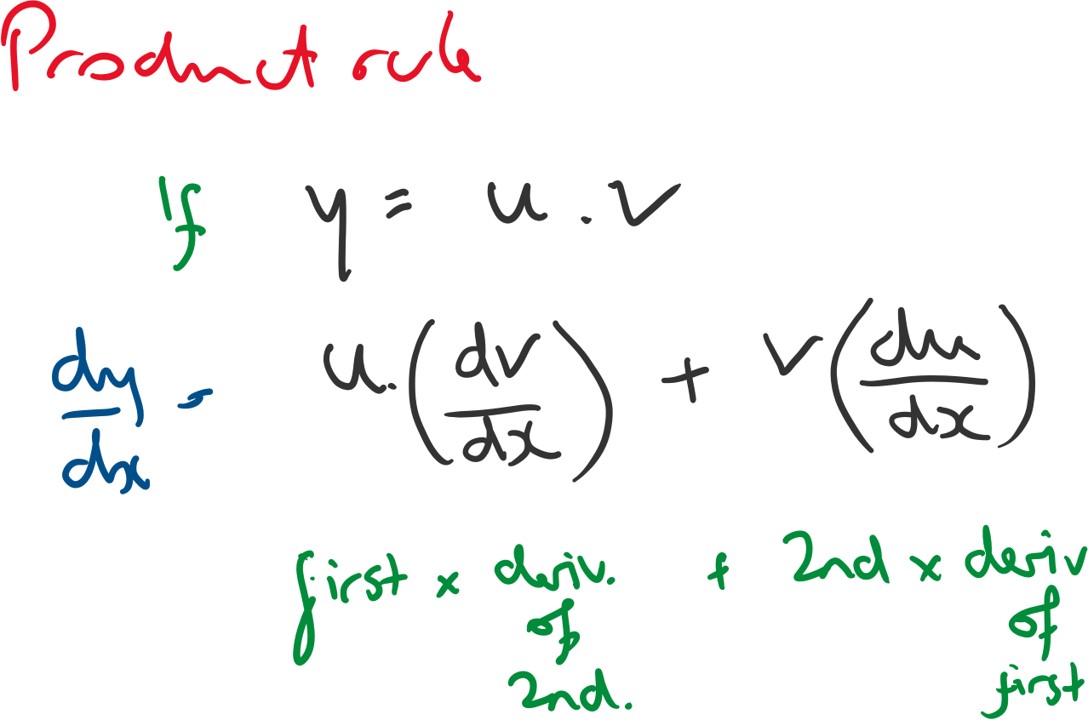 Product rule
If y = u . v
dy/dx = u. (dv/dx) + v (du/dx)
first x deriv. of 2nd. + 2nd x deriv of first